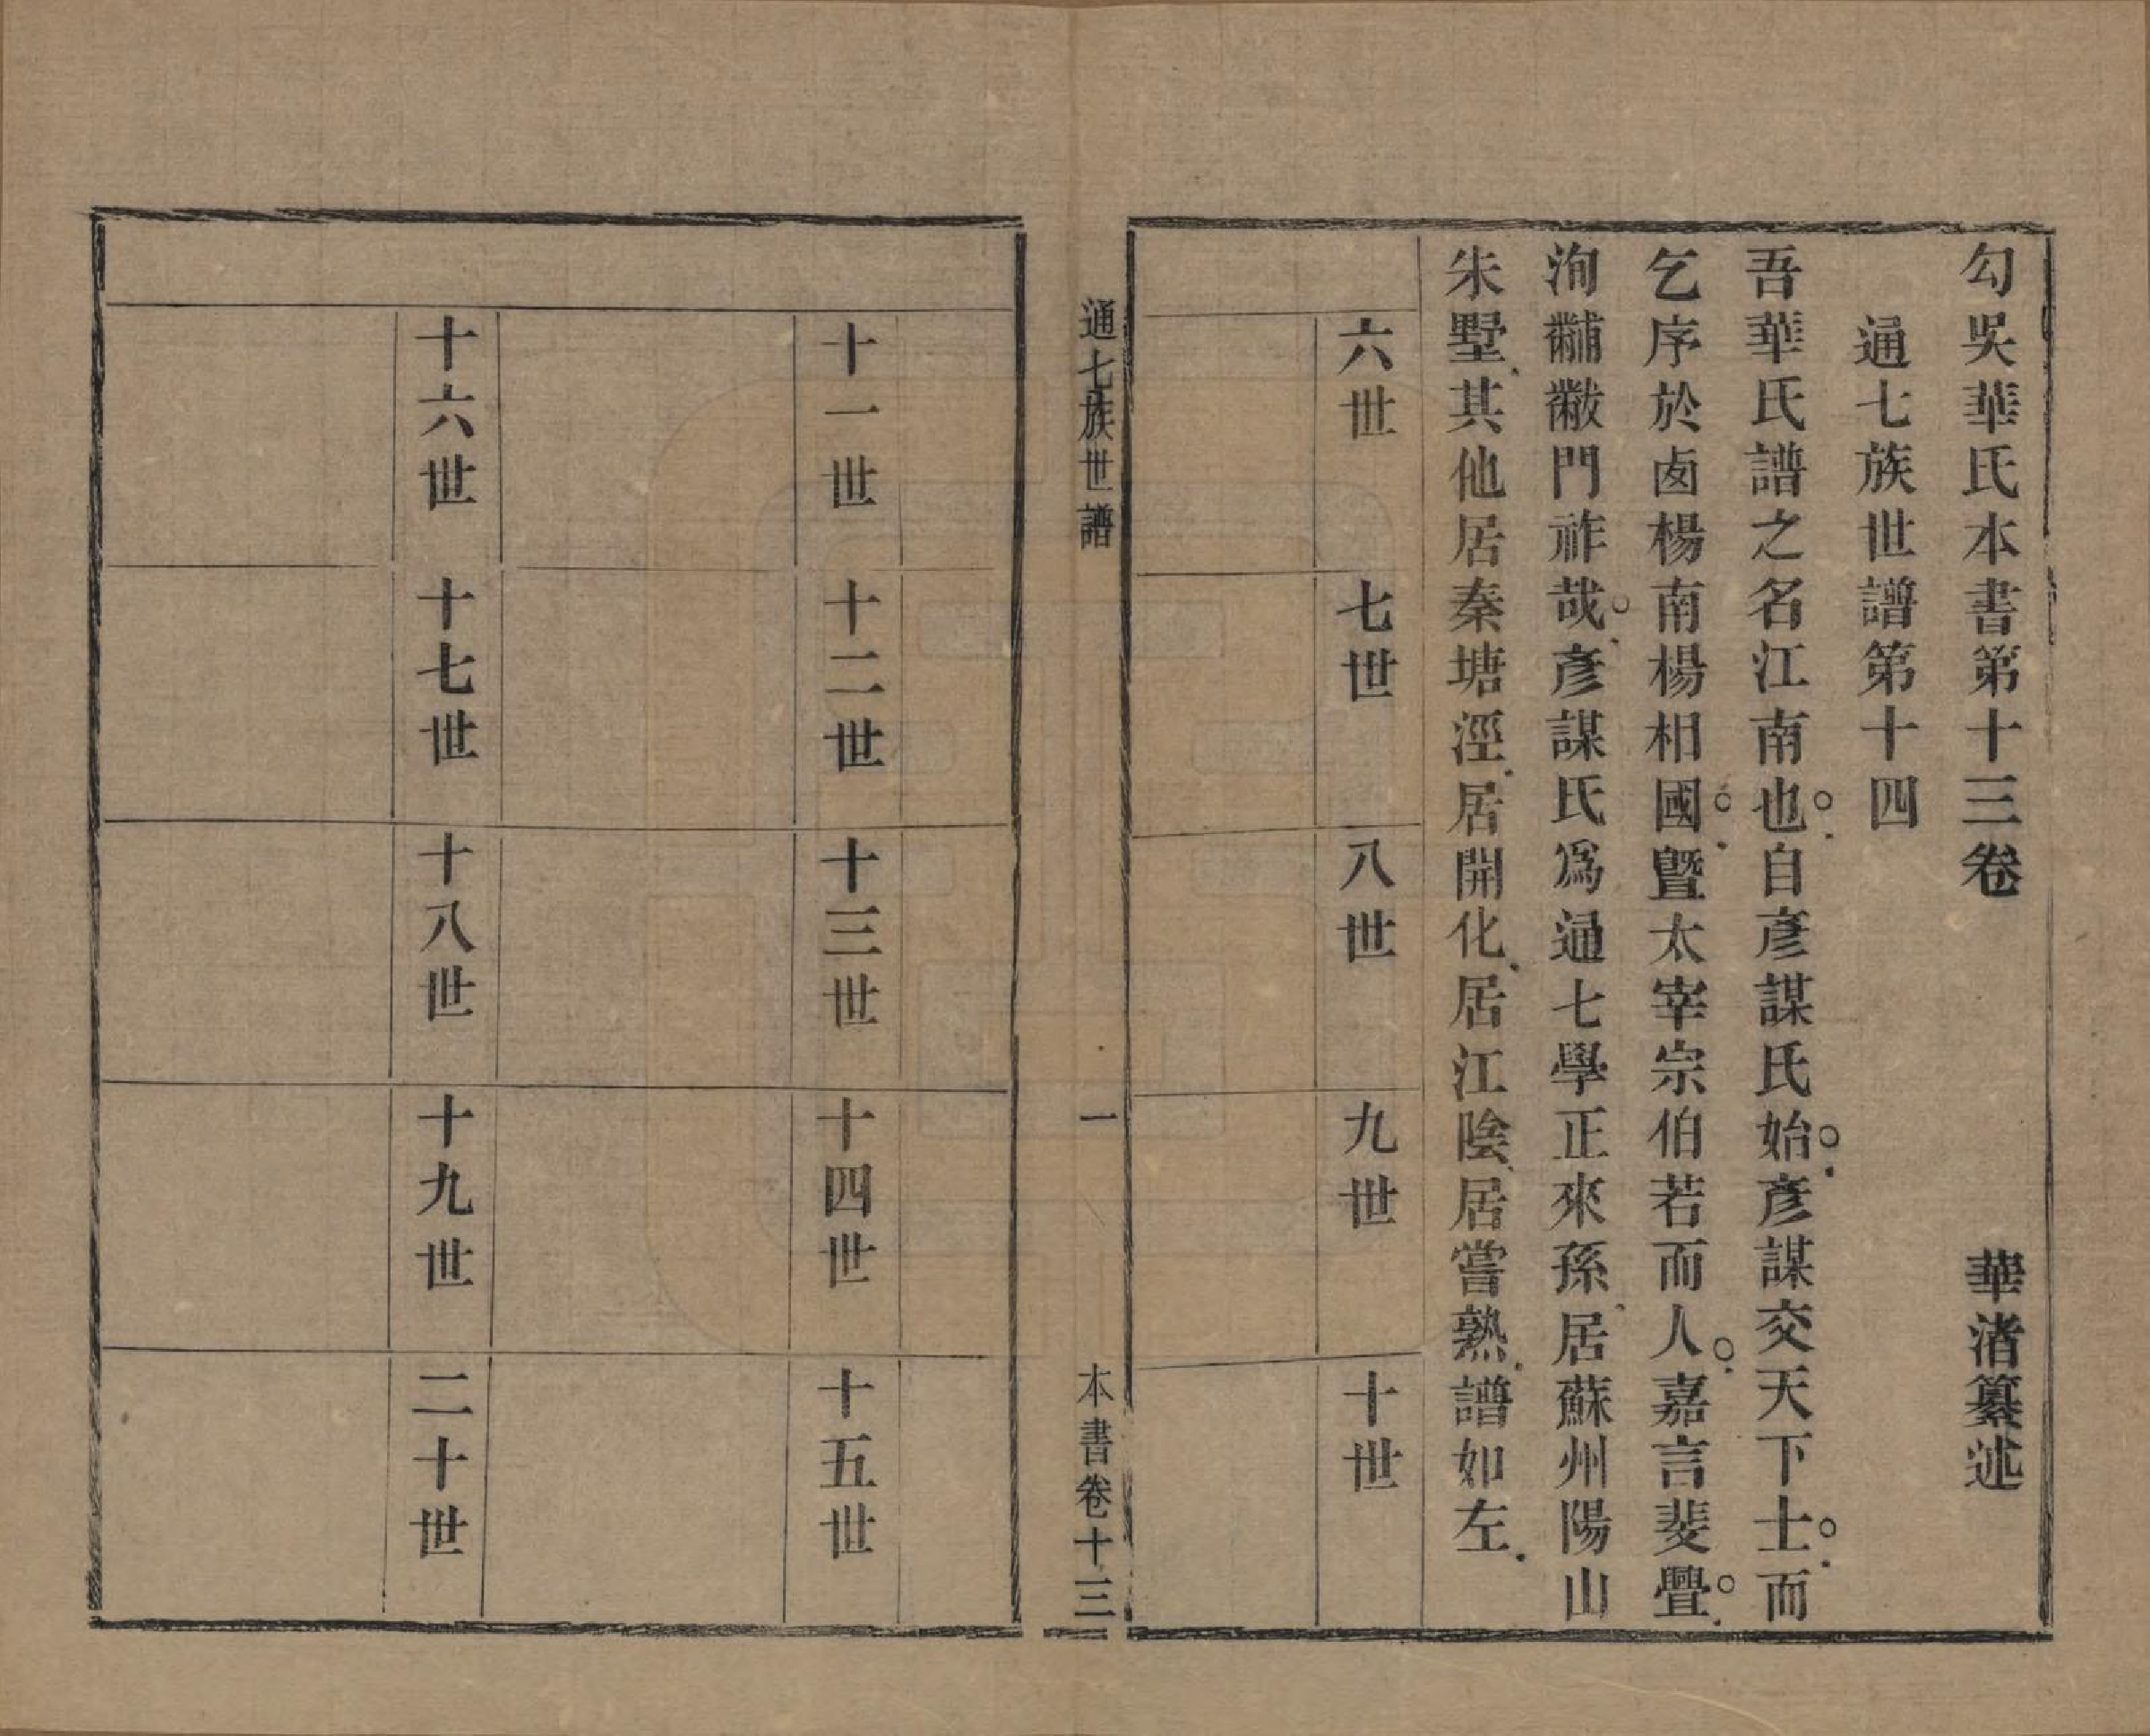 勾吳華氏本書第十三卷
華渚纂述
通七族世譜第十四
吾華氏譜之名江南也。自彥謀氏始。彥謀交天下士。而
乞序於鹵楊南楊相國。曁太宰宗伯若而人。嘉言斐亹。
洵黼黻門祚哉。彥謀氏爲通七學正來孫、居蘇州陽山
朱墅、其他居秦塘涇、居開化、居江陰、居嘗熟、譜如左、
六世
七世
八世
九世
十世
通七族世譜
一
本書卷十三
十一世
十二世
十三世
十四世
十五世
十六世
十七世
十八世
十九世
二十世